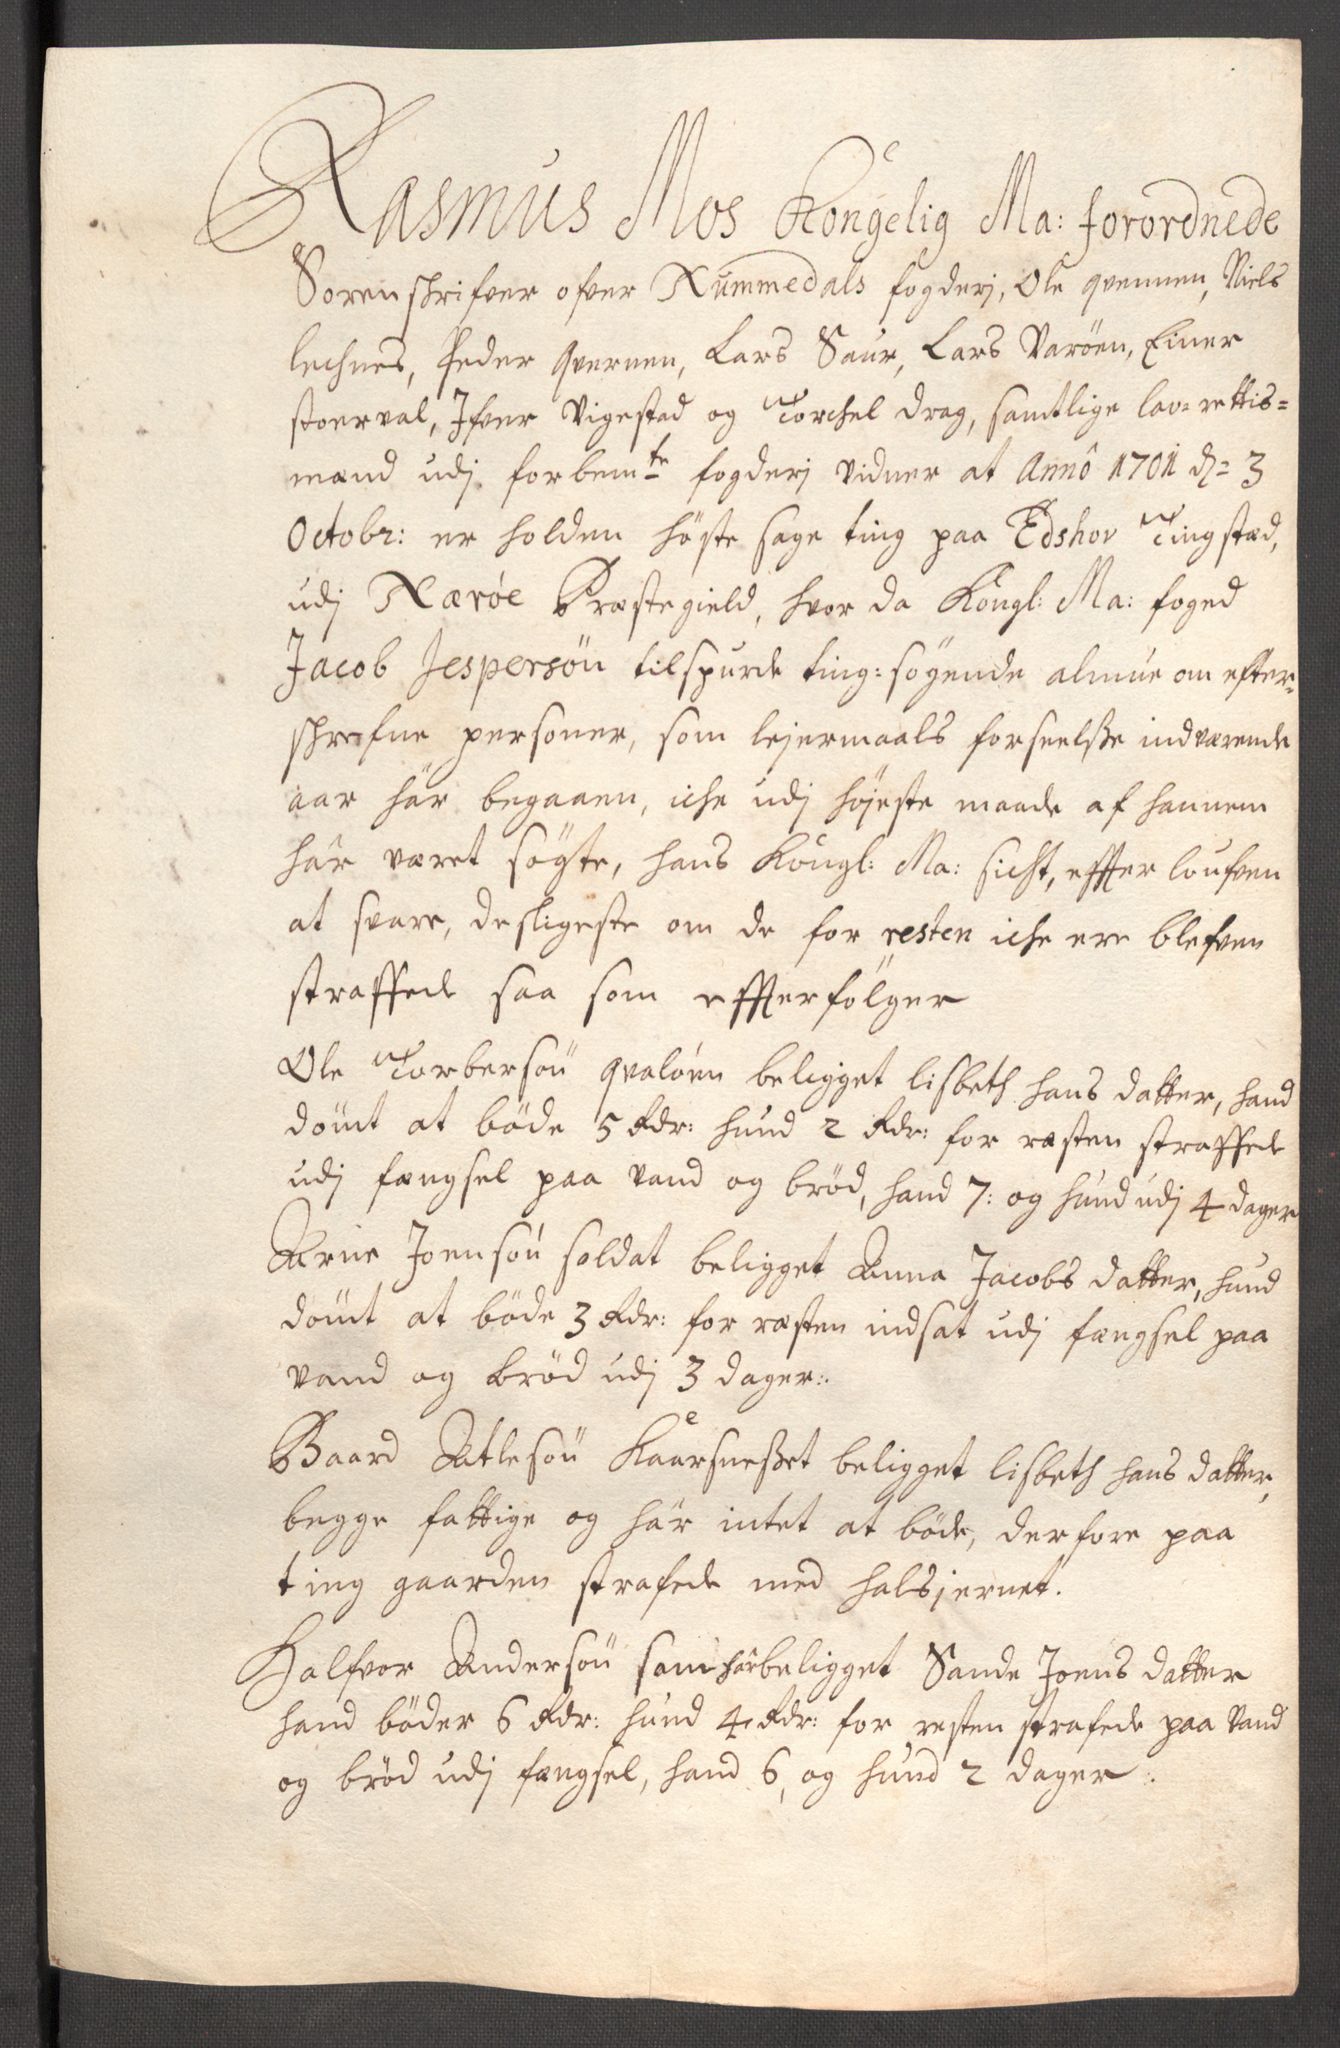 Rasmus Mos Kongelig Ma: forordnede
Sorenskrifver ofver Nummedals fogderj, Ole qvennen, Niels
lechnes, Peder qvernen, Lars Saur, Lars Varöen, Einer
stoerval, Jfver Vigestad og Torchel drag, samtlige lav=rettis=
mænd udj forbemte fogderj vidner at Annô 1701 d= 3
Octobr: er holden höste sage ting paa Edshov Tingstæd,
udj Nærøe Præstegield, hvor da Kongl: Ma: foged
Jacob Jespersön tilspurde ting=sögende almue om efter=
skrefne personer, som lejermaals forseelsse indværende
aar här begaaen, iche udj höjeste maade af hannem
här været sögte, hans Kongl: Ma: sicht, effter loufven
at svare, desligeste om de for resten iche ere blefven
straffede saa som effterfölger
Ole Torbersön qvalöen beligget lisbeth hans datter, hand
dömt at böde 5 Rdr: hund 2 Rdr: for ræsten straffede
udj fængsel paa vand og bröd, hand 7: og hund udj 4 dager
Arne Joensön soldat beligget Anna Jacobs datter, hund
dömt at böde 3 Rdr: for ræsten indsat udj fængsel paa
vand og bröd udj 3 dager:
Baard Atlesön Kaarsnesset beligget lisbeth hans datter,
begge fattige og här intet at böde, derfore paa
ting gaarden strafede med halsjernet.
Halfvor Andersön som här beligget Sande Joens datter
hand böder 6 Rdr: hund 4 Rdr: for resten strafede paa vand
og bröd udj fængsel, hand 6, og hund 2 dager: